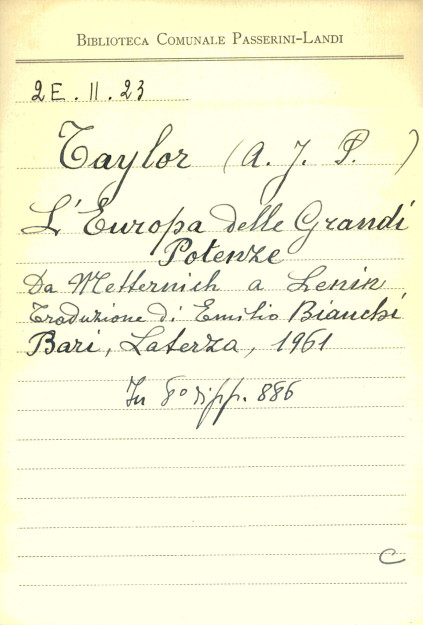 BIBLIOTECA COMUNALE PASSERINI-LANDI
2E. II. 23
Taylor (A. J. P. )
L'Europa delle Grandi
Potenze
Da Metternich a Lenin
Traduzione di Emilio Bianchi
Bari, Laterza, 1961
In 8° di pp. 886
C